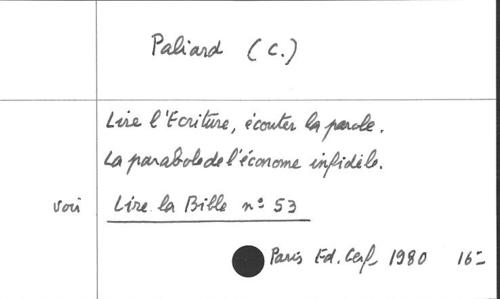 Paliard (C.)
Lire l'Ecriture, écouter la parole.
La parabole de l'économe infidèle.
voir Lire la Bible n° 53
Paris Ed. Cerf 1980 16°